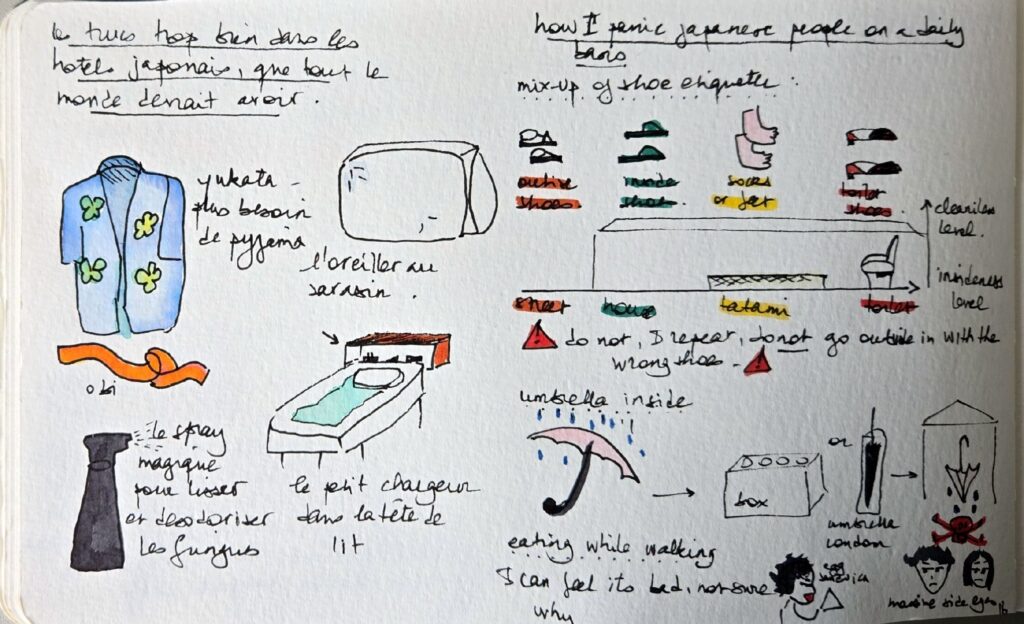 les trucs trop bien dans les
hotels japonais, que tout le
monde devrait avoir.
yukata -
plus besoin
de pyjama
l'oreiller au
sarasin.
obi
le spray
magique
pour lisser
et desodoriser
les fungus
le petit chargeur
dans la tête de
lit
how I panic japanese people on a daily
basis
mix-up of shoe etiquette :
outside
shoes
inside
shoes
socks
or feet
toilet
shoes
cleanliness
level.
insideness
level
street
house
tatami
toilet
do not, I repeat, do not go outside in with the
wrong shoes.
umbrella inside
box
or
umbrella
condom
eating while walking
I can feel its bad, not sure
why
massive side eyes